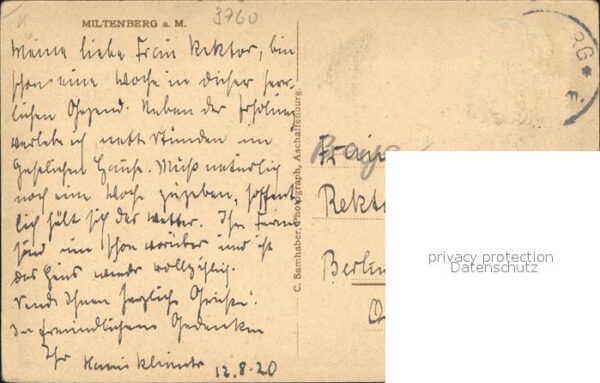 MILTENBERG a. M.
3760
Meine liebe Frau Rektor, bin
schon eine Woche in dieser herr-
lichen Gegend. Neben der Erholung
verlebe ich nette Stunden im
Hause. Muß natürlich
noch eine Woche zugeben, hoffent-
lich hält sich das Wetter. Ihre Ferien
sind nun schon vorüber und ist
das Haus wieder vollzählig.
Sende Ihnen herzliche Grüße.
In freundlichem Gedenken
Ihr
12.8.20
C. Samhaber, Photograph, Aschaffenburg.
RG *
Frau
Rekt
Berlin
privacy protection
Datenschutz